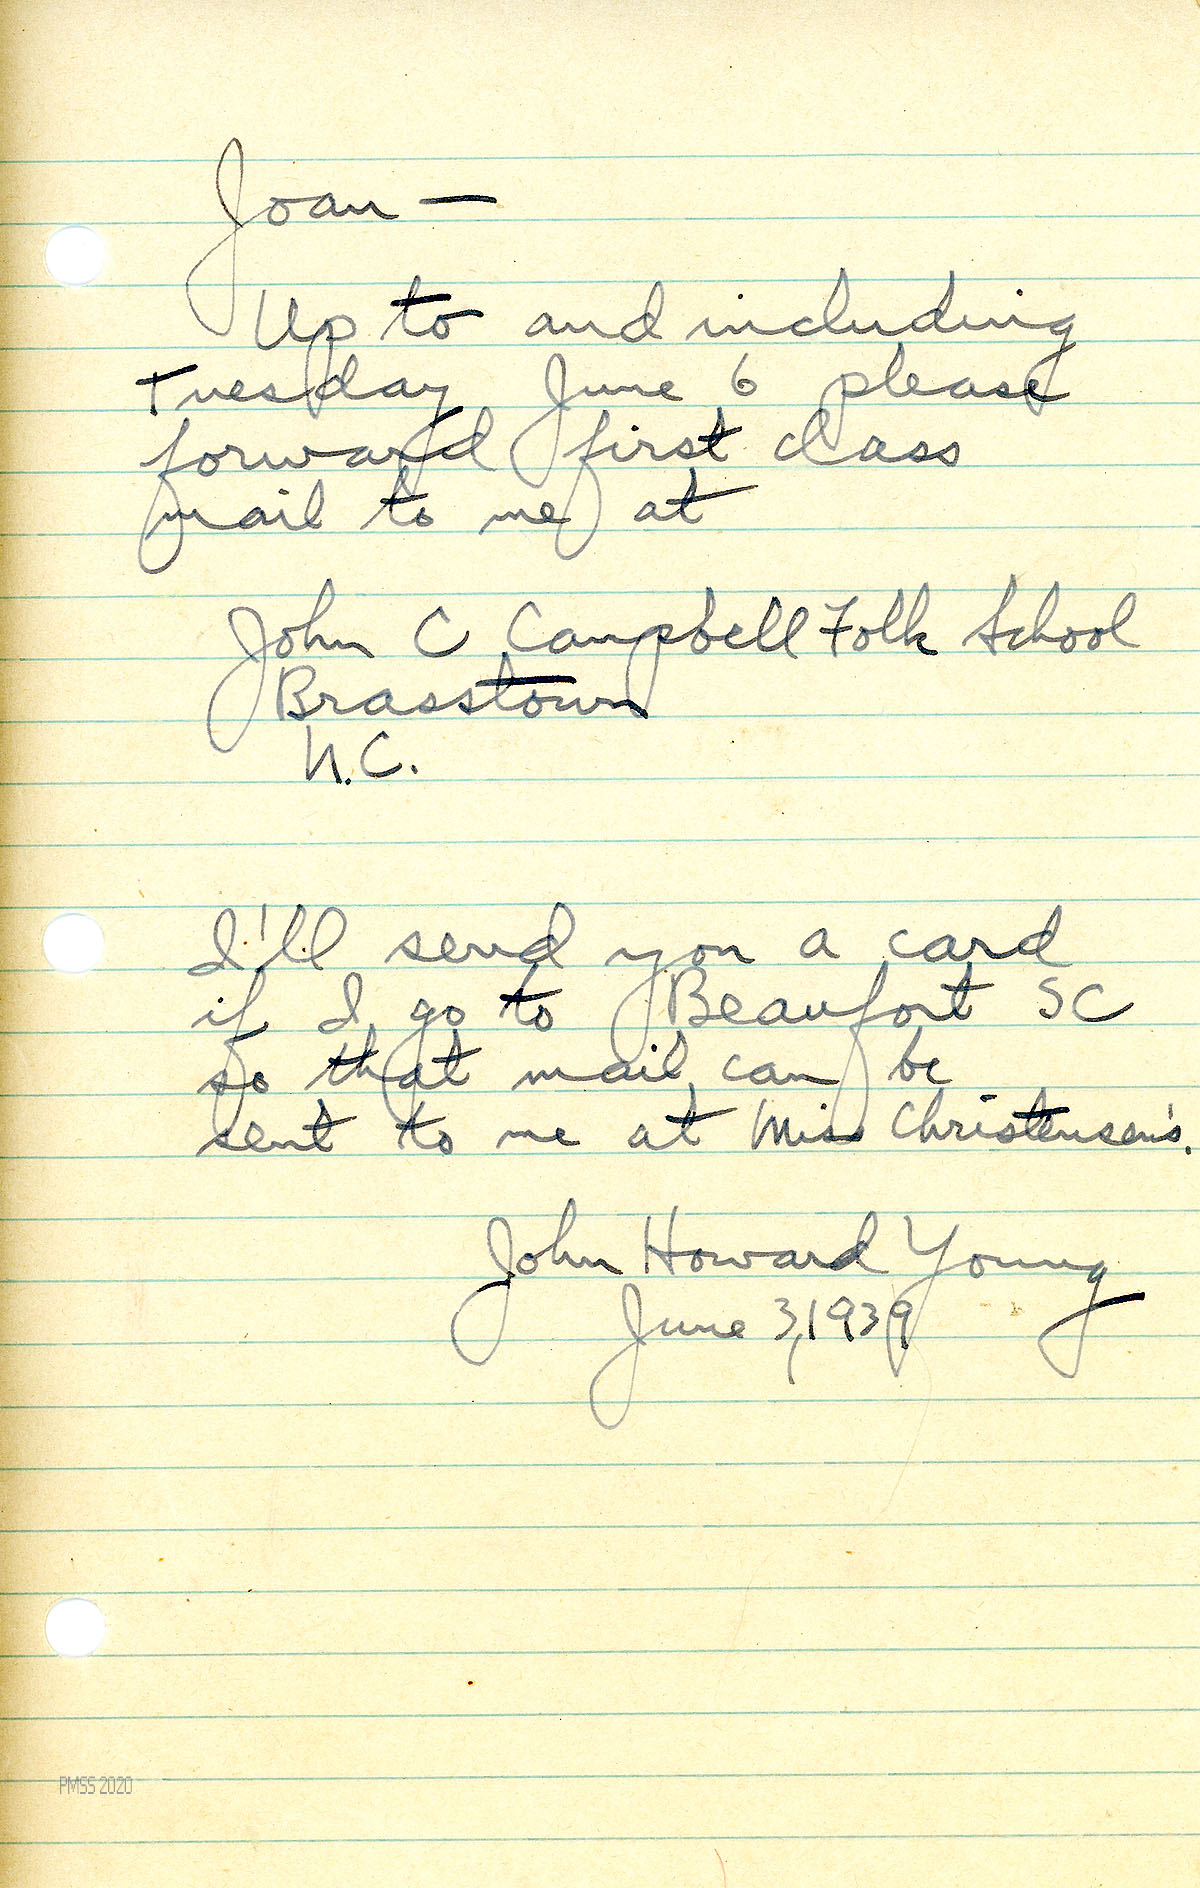 Joan —
Up to and including
Tuesday June 6 please
forward first class
mail to me at
John C Campbell Folk School
Brasstown
N.C.
I'll send you a card
if I go to Beaufort SC
so that mail can be
sent to me at Miss Christensen's.
John Howard Young
June 3, 1939
PMSS 2020